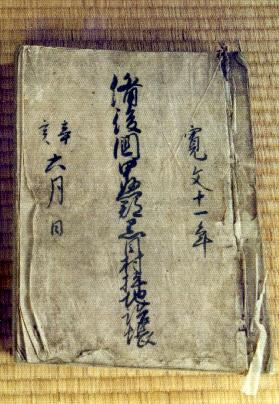 寛文十一年
備後国甲奴郡黒目村検地帳
辛亥 六月 日